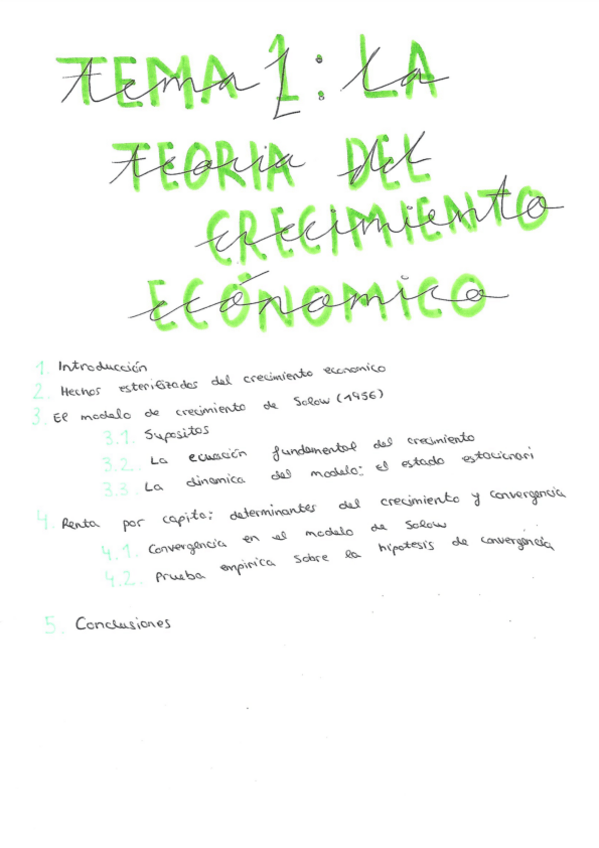 Tema 1: La
Teoria del
Crecimiento
Ecónomico
1. Introducción
2. Hechos esterilizados del crecimiento economico
3. El modelo de crecimiento de Solow (1956)
3.1. Supositos
3.2. La ecuación fundamental del crecimiento
3.3. La dinamica del modelo: el estado estacionari
4. Renta por capita: determinantes del crecimiento y convergencia
4.1. Convergencia en el modelo de Solow
4.2. Prueba empirica sobre la hipotesis de convergencia
5. Conclusiones